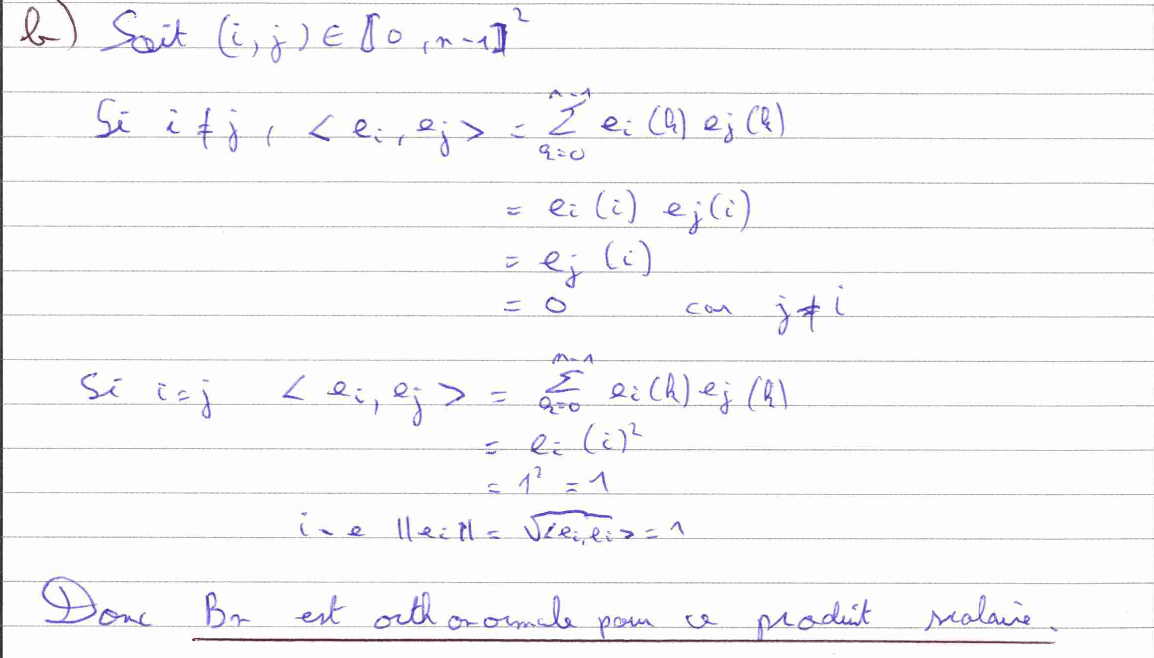 b) Soit (i,j) ∈ ⟦0, n-1⟧²
Si i ≠ j, < ei, ej > = ∑_{k=0}^{n-1} ei(k) ej(k)
= ei(i) ej(i)
= ej(i)
= 0 car j ≠ i
Si i=j < ei, ej > = ∑_{k=0}^{n-1} ei(k) ej(k)
= ei(i)²
= 1² = 1
i-e ||ei|| = √<ei,ei> = 1
Donc Bn est orthonormale pour ce produit scalaire.